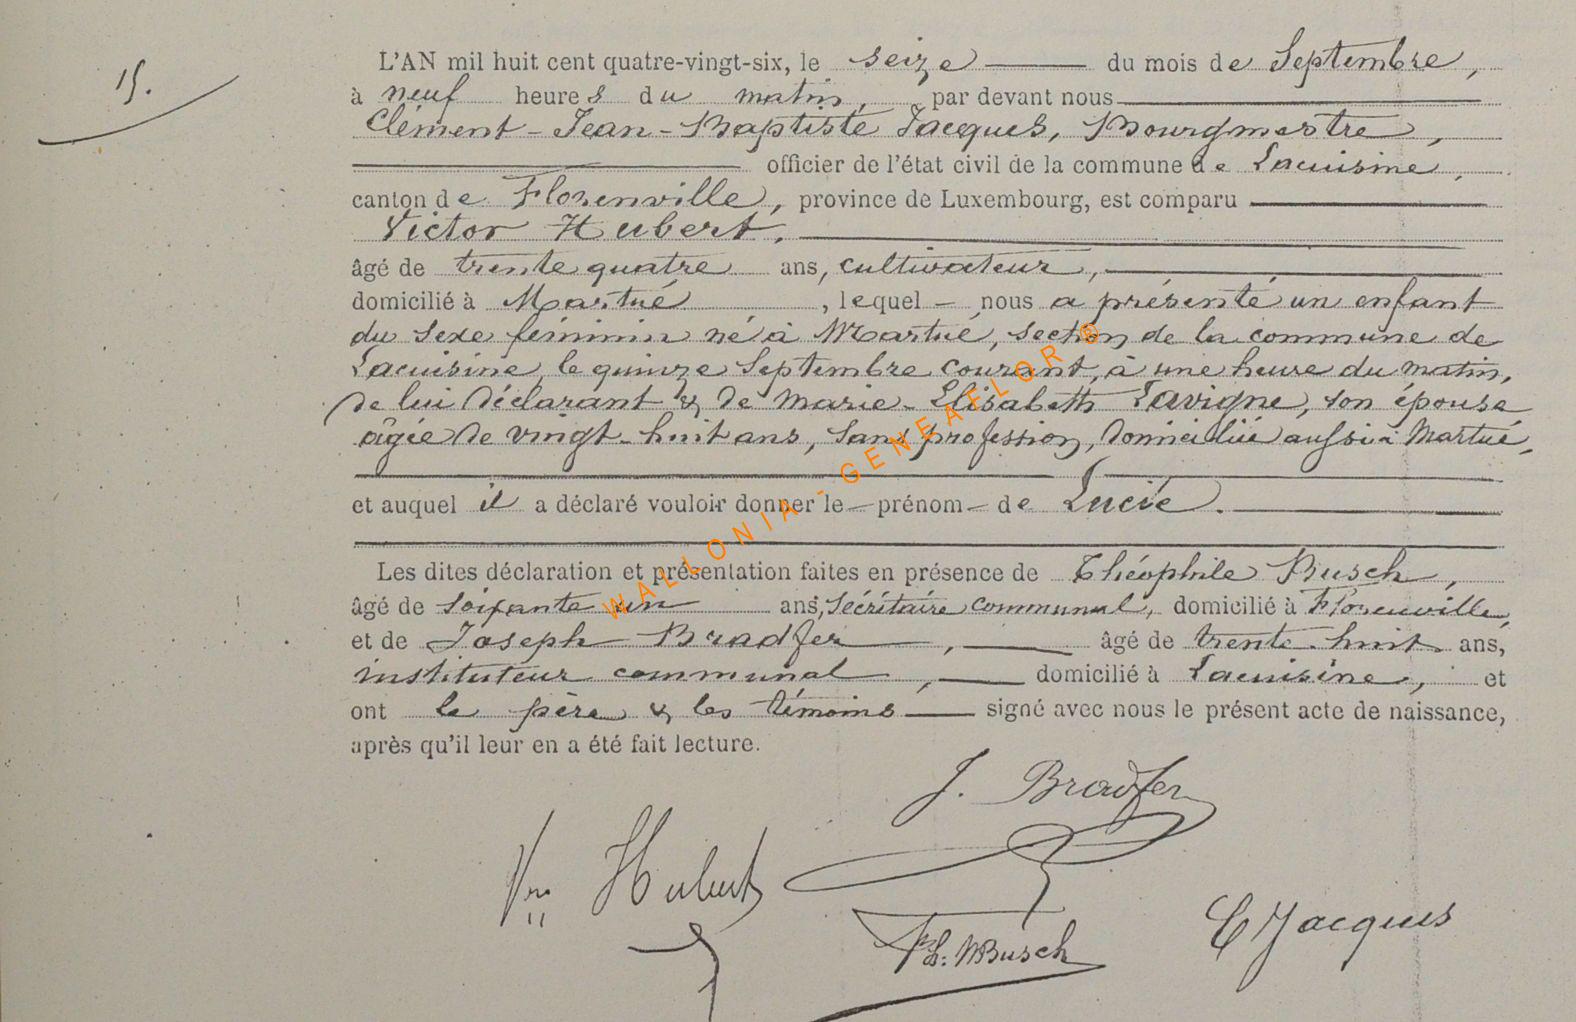 15.
L'AN mil huit cent quatre-vingt-six, le seize du mois de Septembre,
à neuf heures du matin, par devant nous
Clément-Jean-Baptiste Jacques, Bourgmestre,
officier de l'état civil de la commune de Lacuisine,
canton de Florenville, province de Luxembourg, est comparu
Victor Hubert,
âgé de trente quatre ans, cultivateur,
domicilié à Martué, lequel - nous a présenté un enfant
du sexe féminin né à Martué, section de la commune de
Lacuisine, le quinze Septembre courant, à une heure du matin,
de lui déclarant & de Marie-Elisabeth Lavigne, son épouse
âgée de vingt-huit ans, sans profession, domiciliée aussi à Martué,
et auquel il a déclaré vouloir donner le - prénom - de Lucie.
Les dites déclaration et présentation faites en présence de Théophile Busch,
âgé de soixante un ans, Sécrétaire communal, domicilié à Florenville,
et de Joseph Bradfer, âgé de trente-huit ans,
instituteur communal, domicilié à Lacuisine, et
ont le père & les témoins signé avec nous le présent acte de naissance,
après qu'il leur en a été fait lecture.
J. Bradfer
Vor Hubert
Th. Busch
C Jacques
WALLONIA - GENEAFLOR ®